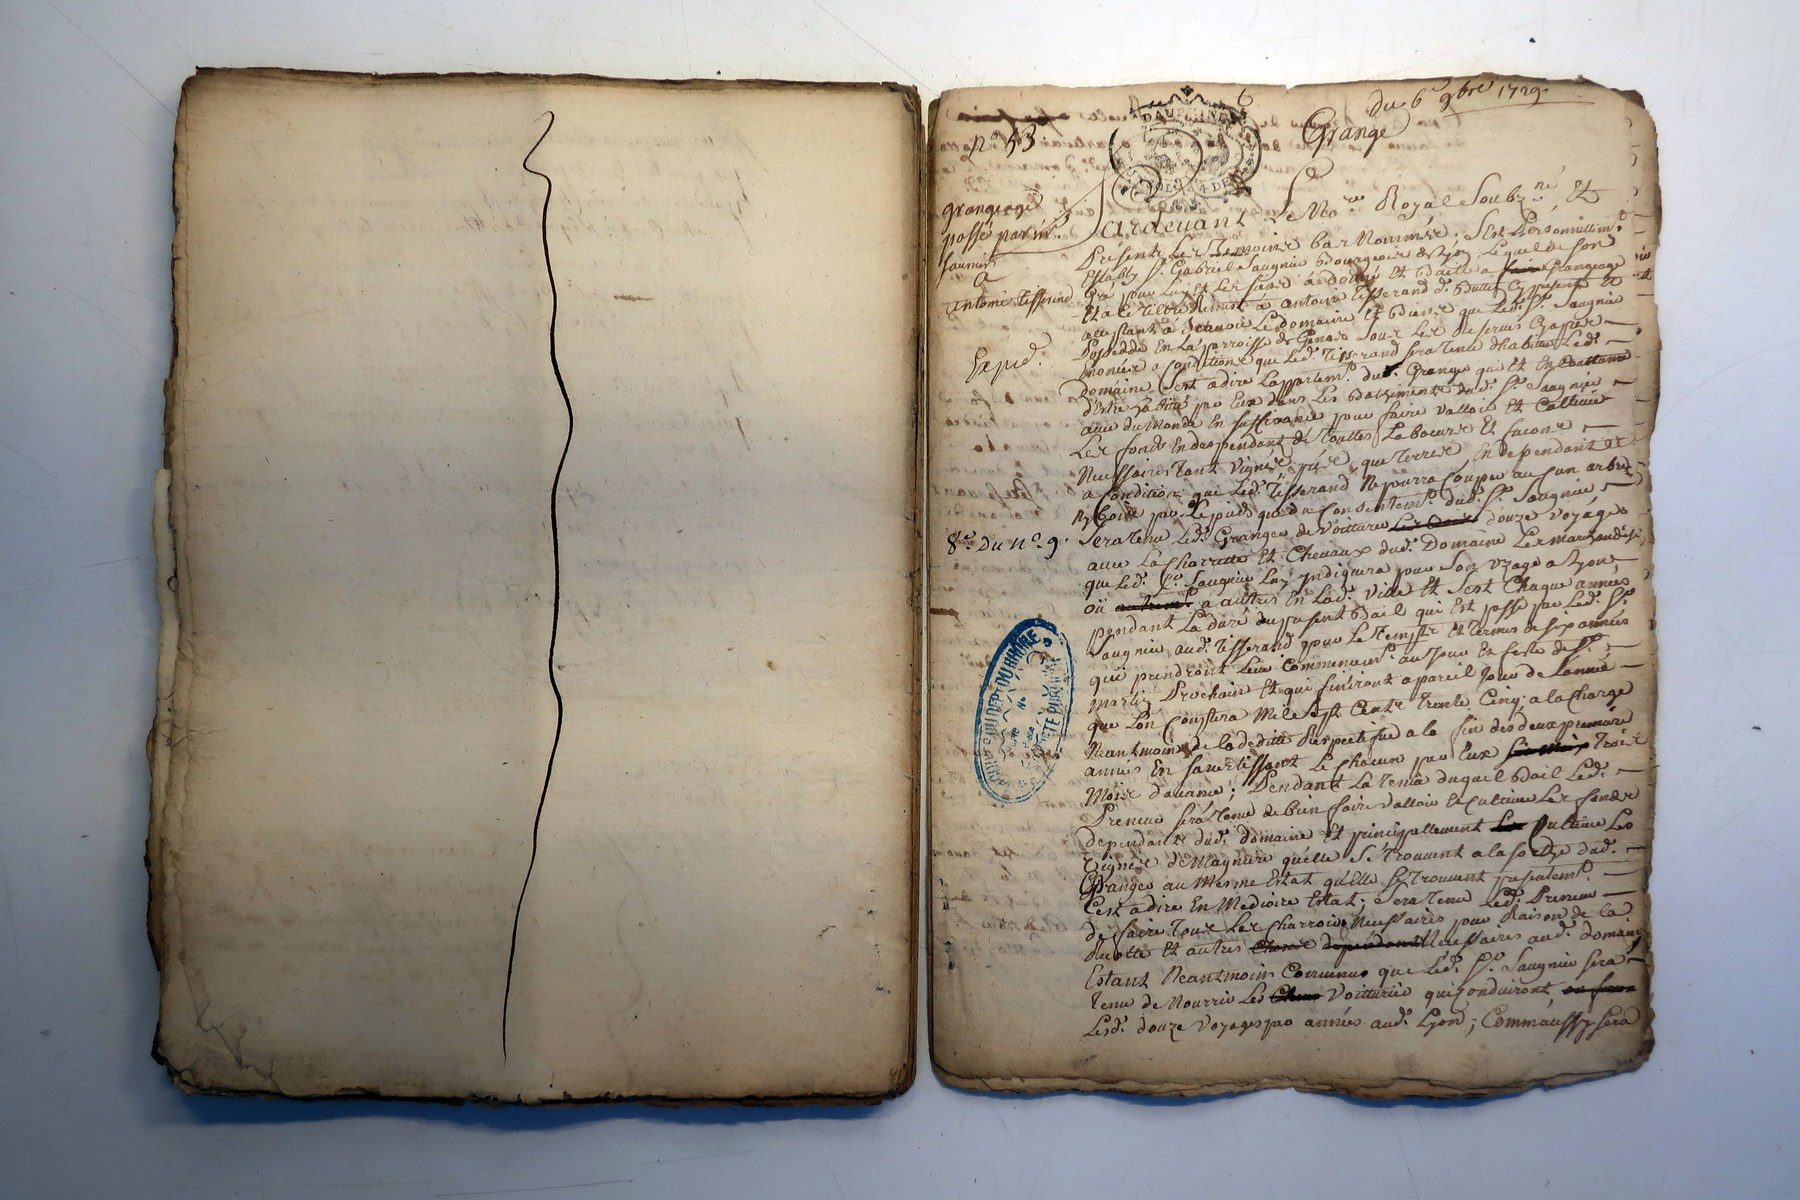 6
du 6e 9bre 1729
Grange
DAUPHINE
4 DE
No 53
grangeage
passé par sr
saunier
a
antoine tisserand
Exped.
8e Du no 9.
Pardevant Le No.re Royal Soubz.né, Et
Présents Les Temoins bas Nommés; S'Est Personnellem.t
Estably Sr. Gabriel Saugnier Bourgeois de Lyon Lequel de Son
Gré pour Luy et Les Siens a donné Et Baillé a Grangeage
Et a ce Tiltre Remet a antoine Tisserand
acceptant a Sçavoir Le domaine Et Biens que Led. Sr. Saugnier
Possedde En La parroisse de Genas Sous Les
Conditions que Led. Tisserand Sera Tenu d'habiter Led.
domaine C'est a dire L'appartem.t du Granger qui Est En Couttume
d'Estre habitté par Eux dans Les Battiments dud. Sr. Saugnier
avec du Monde En Suffisance pour faire valloir Et Cultiver
Les fonds En despendant de Touttes Labeures Et facons
Necessaires Tant Vignes, prés que Terres En dependant Et
a Condition que Led. Tisserand Ne pourra Couper aucun arbre
Ny Bois par Le pied que du Consentem.t dud. Sr. Saugnier
Sera Tenu Led. Granger de Voiturer douze voyages
avec La Charrette Et Chevaux dud. Domaine Les Marchandises
que Led. Sr. Saugnier Luy Indiquera pour Son Uzage a Lyon
ou a autres En Lad. Ville Et C'est Chaque années
pendant La duré du present Bail qui Est passé par Led. Sr.
Saugnier aud. Tisserand pour Le Temps Et Termes de Six années
qui prendront Leur Commencem.t au Jour Et feste de St.
Martin Prochain Et qui finiront a pareil Jour de L'année
que L'on Comptera Mile Sept Cents Trente Cinq; a la Charge
Neantmoins de la deditte Respectifue a la fin des deux premiere
années En S'avertissant Le Chacun par Eux Trois
Mois d'avance; Pendant La Tenue duquel Bail Led.
Preneur Sera Tenu de bien faire valloir Et Cultiver Les fonds
dependants dud. domaine Et principallement Cultiver Les
Vignes de Maynere qu'elle Se Trouvent a la Sortye dud.
Granger au Mesme Estat qu'Elle Se Trouvent presentem.t
C'est a dire En Mediocre Estat; Sera Tenu Led. Preneur
de faire Tous Les Charrois Necessaires pour Raison de la
Recolte Et autres Necessaires aud. domaine
Estant Neantmoins Convenus que Led. Sr. Saugnier Sera
Tenu de Nourrir Les Voitturier qui Conduiront
Lesd. douze Voyages par années aud. Lyon; Comm'aussy Sera